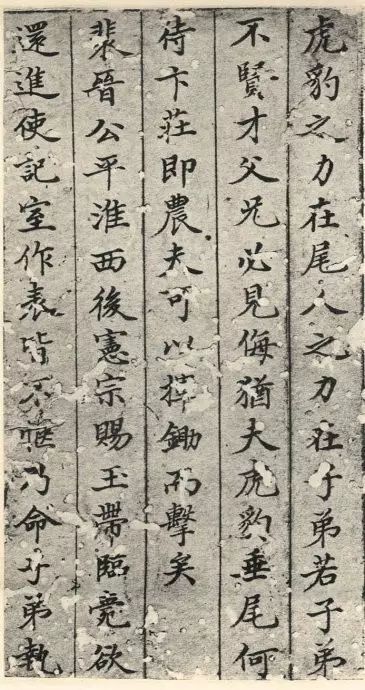 虎豹之力在尾人之力在子弟若子弟
不賢才父兄必見侮猶夫虎豹垂尾何
待卞莊即農夫可以揮鋤而擊矣
裴晉公平淮西後憲宗賜玉帶臨薨欲
還進使記室作表皆不愜乃命子弟執